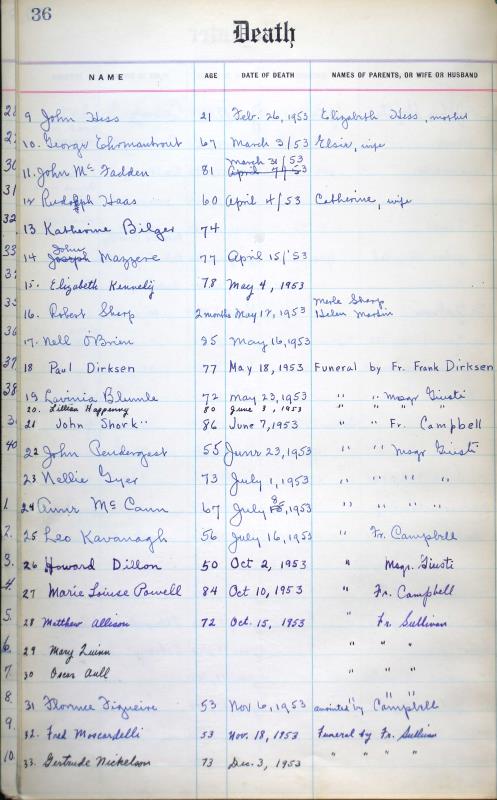 36
Death
NAME AGE DATE OF DEATH NAMES OF PARENTS, OR WIFE OR HUSBAND
9 John Hess 21 Feb. 26, 1953 Elizabeth Hess, mother
10. George Ehrmantrout 67 March 3/53 Elsie, wife
March 31/53
11. John Mc Fadden 81 April 7/53
12 Rudolph Haas 60 April 4/53 Catherine, wife
13 Katherine Bilger 74
John
14 Joseph Mazzere 77 April 15/'53
15. Elizabeth Kennedy 78 May 4, 1953
Merle Sharp
16. Robert Sharp 2 months May 12, 1953 Helen Martin
17. Nell O'Brien 85 May 16, 1953
18 Paul Dirksen 77 May 18, 1953 Funeral by Fr. Frank Dirksen
19 Lavinia Blumle 72 May 23, 1953 " " Msgr Giusti
20. Lillian Happenny 80 June 3, 1953 " " " "
21 John Shork" 86 June 7, 1953 " " Fr. Campbell
22 John Pendergest 55 June 23, 1953 " " Msgr Giusti
23 Nellie Gyer 73 July 1, 1953 " " " "
24 Ann Mc Cann 67 July 8, 1953 " " " "
25 Leo Kavanagh 56 July 16, 1953 " Fr. Campbell
26 Howard Dillon 50 Oct 2, 1953 " Msgr. Giusti
27 Marie Louise Powell 84 Oct 10, 1953 " Fr. Campbell
28 Matthew Allison 72 Oct. 15, 1953 " Fr. Sullivan
29 Mary Quinn " " "
30 Oscar Aull " " "
31 Florence Figueire 53 Nov 6, 1953 anointed by "Campbell
32. Fred Moscardelli 53 Nov. 18, 1953 Funeral by Fr. Sullivan
33. Gertrude Nickelson 73 Dec. 3, 1953 " " " "